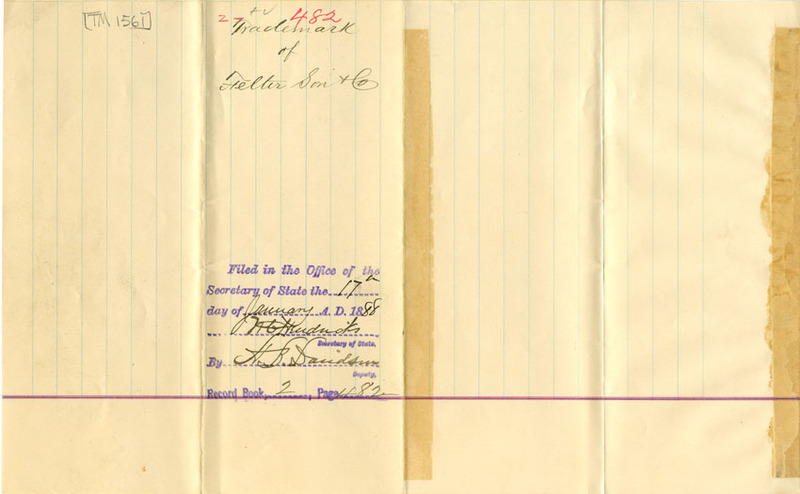 [TM 1561]
2 482
Trademark
of
Felter Son & Co
Filed in the Office of the
Secretary of State the 17
day of January A. D. 1888
W C Hendricks
Secretary of State.
By A. B. Davidson
Deputy.
Record Book, 2, Page 482